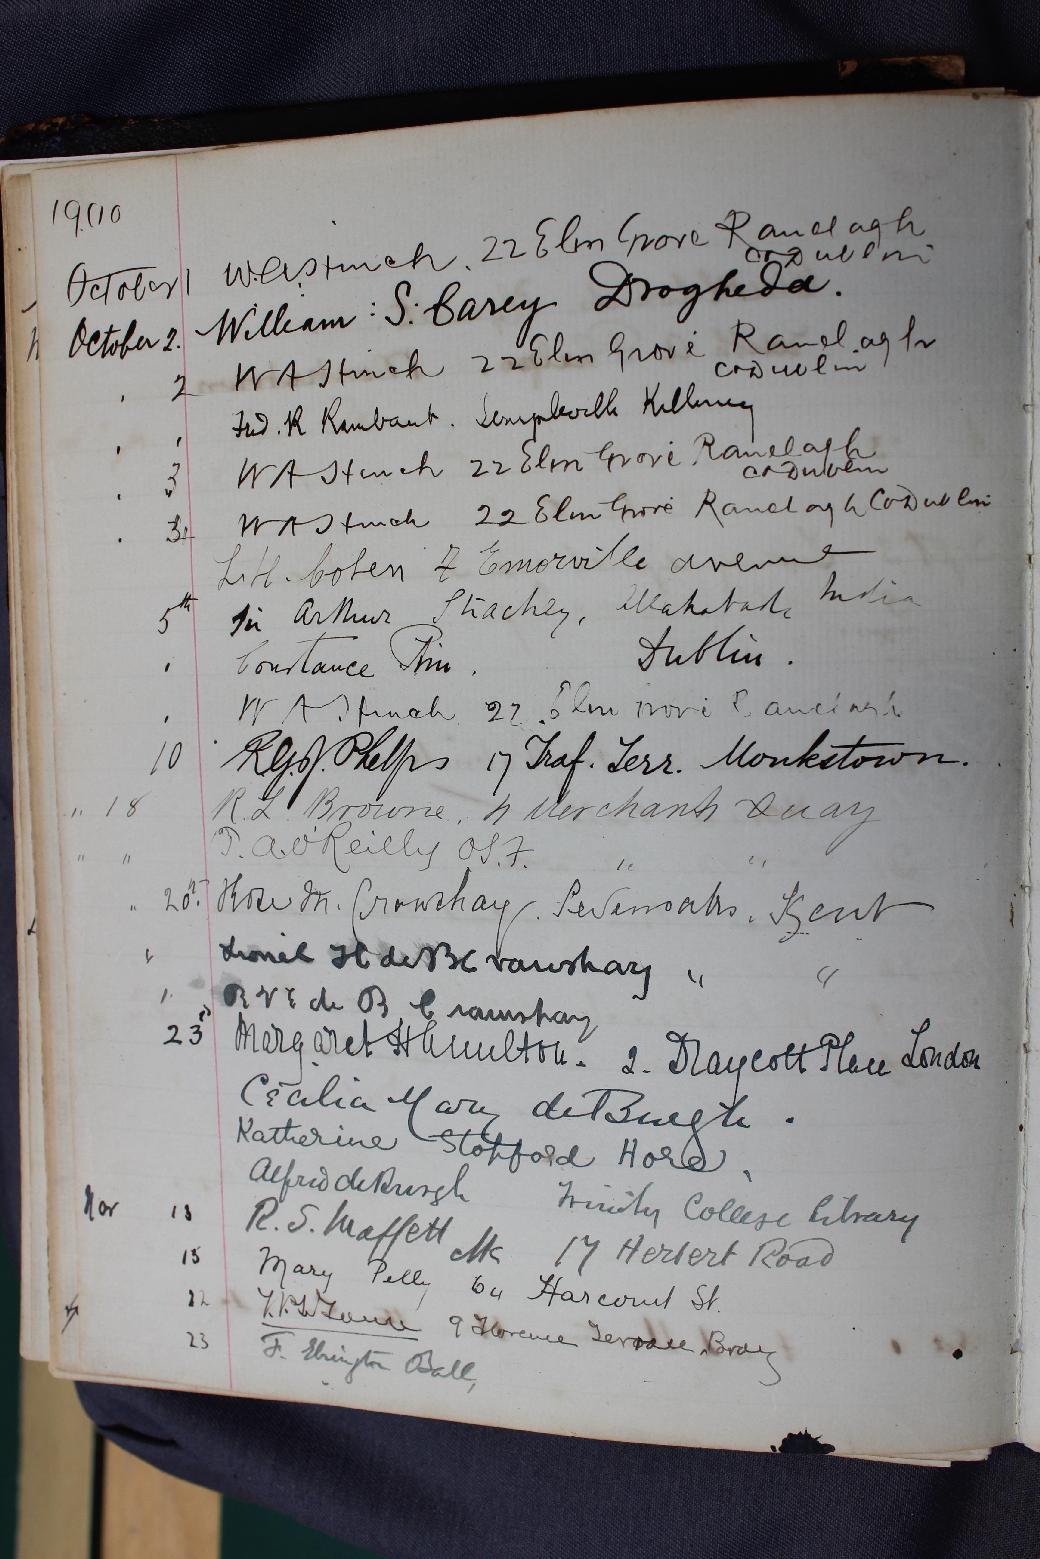 1900
October 1 W.A. Stinch. 22 Elm Grove Ranelagh
Co Dublin
October 2. William : S. Carey Drogheda.
2 W A Stinch 22 Elm Grove Ranelagh
Co Dublin
Fred. R Rambaut. Templeville
3 W A Stinch 22 Elm Grove Ranelagh
Co Dublin
W A Stinch 22 Elm Grove Ranelagh Co Dublin
L.H. Cohen 7 Emorville avenue
5th Sir Arthur Strachey, Allahabad, India
Constance Pim. Dublin.
W A Stinch 22 Elm Grove Ranelagh
10 Phelps 17 Traf. Terr. Monkstown.
" 18 R. L. Browne, 4 Merchants Quay
" " T. A. O'Reilly O.S.F. " "
" 20th Rose M. Crawshay. Sevenoaks. Kent
" Lionel H de B Crawshay " "
de B Crawshay
23rd Margaret Hamilton. 2. Draycott Place London
Cecilia Mary de Burgh.
Katherine Stopford Hore.
Alfred de Burgh Trinity College Library
Nov 13 R. S. Maffett 17 Herbert Road
15 Mary Pelly 64 Harcourt St.
22 9 Florence Terrace, Bray
23 F. Elrington Ball,